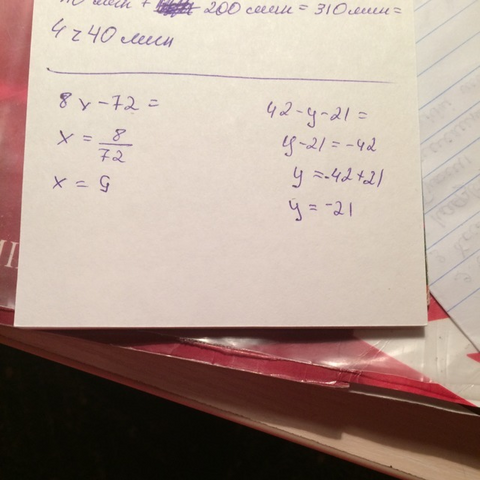 мин + 200 мин = 310 мин =
4 ч 40 мин
8x - 72 =
x = 8/72
x = 9
42 - y - 21 =
y - 21 = -42
y = -42 + 21
y = -21